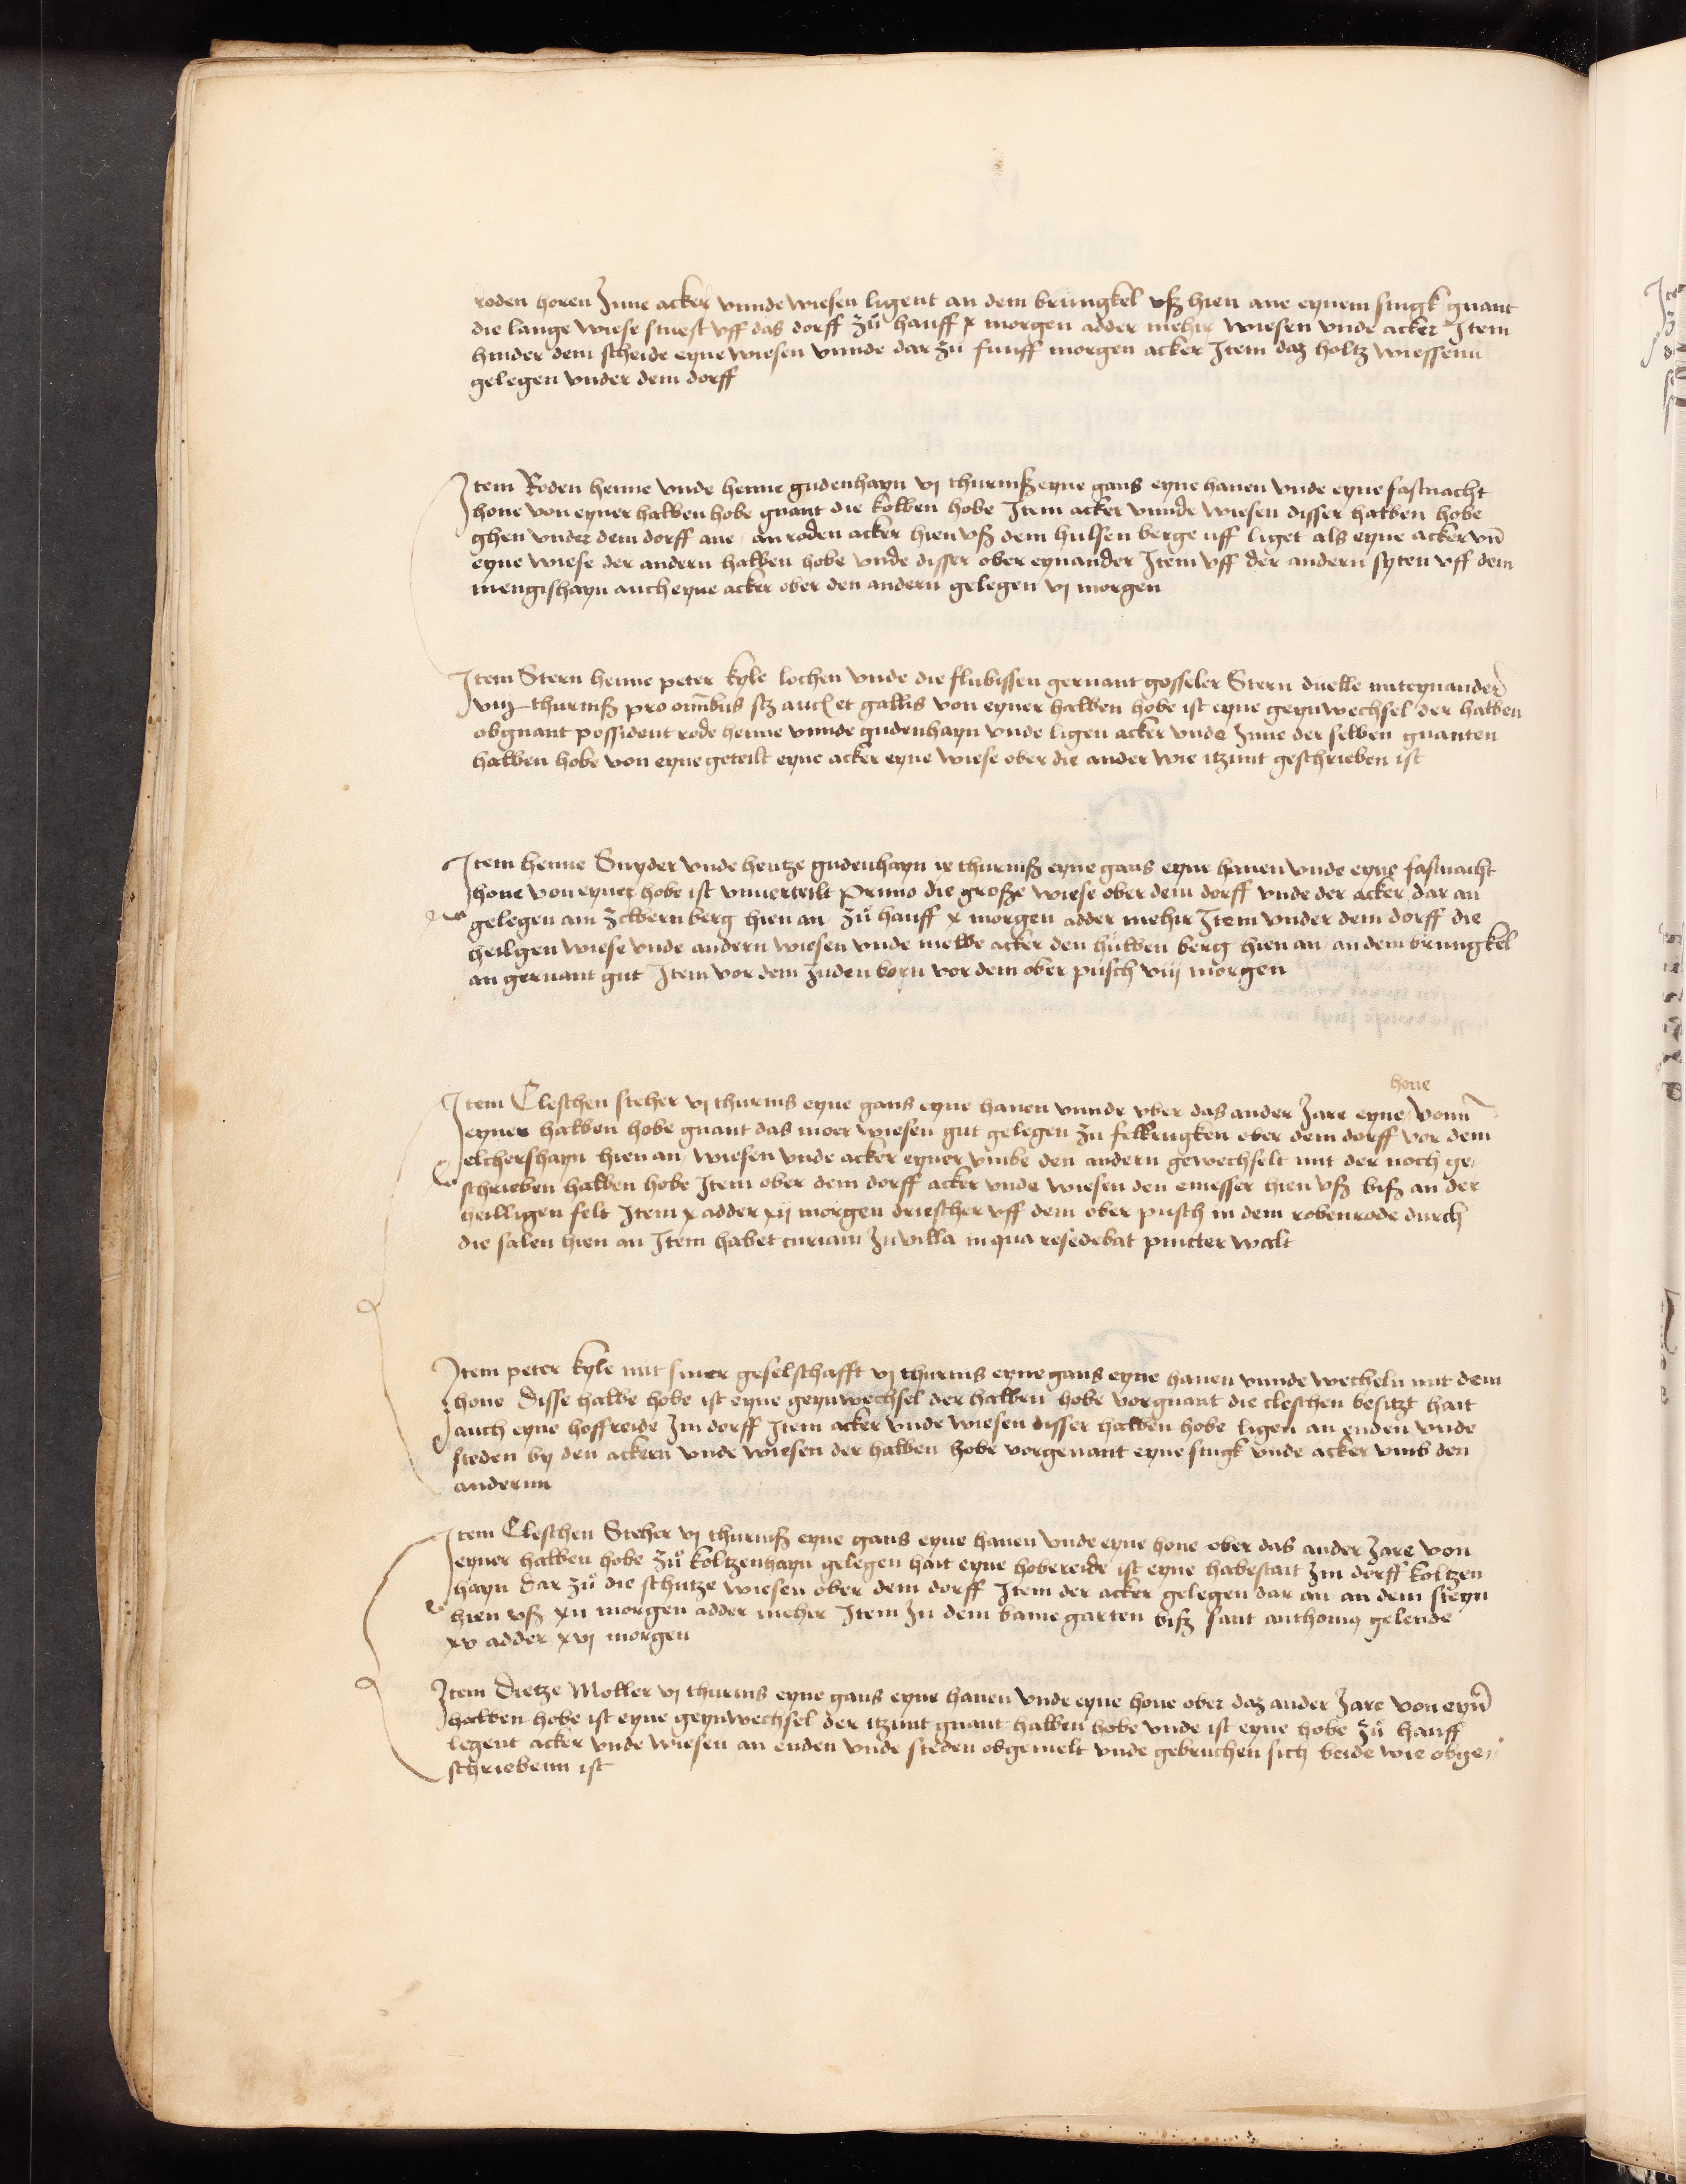 roden horen Jnne acker vnnde wiesen ligent an dem brungkel vsz hien ane eynem singk gnant
die lange wiese smest vff das dorff zů hauff x morgen adder mehir wiesen vnde acker Jtem
hinder dem scheide eyne wiesen vnnde dar zu funff morgen acker Jtem daz holtz wiessenn
gelegen vnder dem dorff
Jtem Roden henne vnde henne gudenhayn vj thurnisz eyne gans eyne hanen vnde eyne fastnacht
hone von eyner halben hobe gnant die kolben hobe Jtem acker vnnde wiesen disser halben hobe
ghen vnder dem dorff ane an roden acker hien vsz dem hulsen berge uff liget als eyne acker vn̄
eyne wiese der andern halben hobe vnde disser ober eynander Jtem vff der andern syten vff dem
mengishayn auch eyne acker ober den andern gelegen vj morgen
Jtem Stern henne peter kyle lochen vnde die flubissen genant gosseler Stern duelle miteynander
viij thurnisz pro omībus sz et gallis von eyner halben hobe ist eyne geynwechsel der halben
obgnant possident rode henne vnnde gudenhayn vnde ligen acker vnde Jnne der selben gnanten
halben hobe von eyne geteilt eyne acker eyne wiese ober die ander wie itzunt geschrieben ist
Jtem henne Snyder vnde hentze gudenhayn ix thurnisz eyne gans eyne hanen vnde eyne fastnacht
hone von eyner hobe ist vnuerteilt Primo die grosze wiese ober dem dorff vnde der acker dar an
gelegen am zelbern berg hien an zů hauff x morgen adder mehir Jtem vnder dem dorff die
heilgen wiese vnde andern wiesen vnde melbe acker den hulben berg hien an an dem brungkel
an genant gut Jtem vor dem Juden born vor dem ober pusch viij morgen
hone
Jtem Cleschen steher vj thurnis eyne gans eyne hanen vnnde vber das ander Jare eyne vonn
eyner halben hobe gnant das moer wiesen gut gelegen zu felkrugken ober dem dorff vor dem
elchershayn hien an wiesen vnde acker eyner vmbe den andern gewechselt mit der noch ge,
schrieben halben hobe Jtem ober dem dorff acker vnde wiesen den emesser hien vsz bisz an der
heilligen felt Jtem x adder xij morgen driescher vff dem ober pusch in dem robenrode durch
die salen hien an Jtem habet curiam Jn villa in qua resedebat pincter walt
Jtem peter kyle mit siner geselschafft vj thurnis eyne gans eyne hanen vnnde wecheln mit dem
hone Disse halbe hobe ist eyne geynwechsel der halben hobe vorgnant die cleschen besitzt hait
auch eyne hoffreide Jm dorff Jtem acker vnde wiesen disser halben hobe ligen an enden vnde
steden by den ackern vnde wiesen der halben hobe vorgenant eyne singk vnde acker vmb den
andernn
Jtem Cleschen Steher vj thurnisz eyne gans eyne hanen vnde eyne hone ober das ander Jare von
eyner halben hobe zů koltzenhayn gelegen hait eyne hobereide ist eyne habestait Jm dorff koltzen
hayn dar zů die schutze wiesen ober dem dorff Jtem der acker gelegen dar an an dem steyn
hien vsz xij morgen adder mehir Jtem Jn dem bame garten bisz sant anthonig gelende
xv adder xvj morgen
Jtem Dietze Moller vj thurnis eyne gans eyne hanen vnde eyne hone ober daz ander Jare von eyn̄
halben hobe ist eyne geynwechsel der itzunt gnant halben hobe vnde ist eyne hobe zů hauff
legent acker vnde wiesen an enden vnde steden obgemelt vnde gebruchen sich beide wie obge,
schriebenn ist